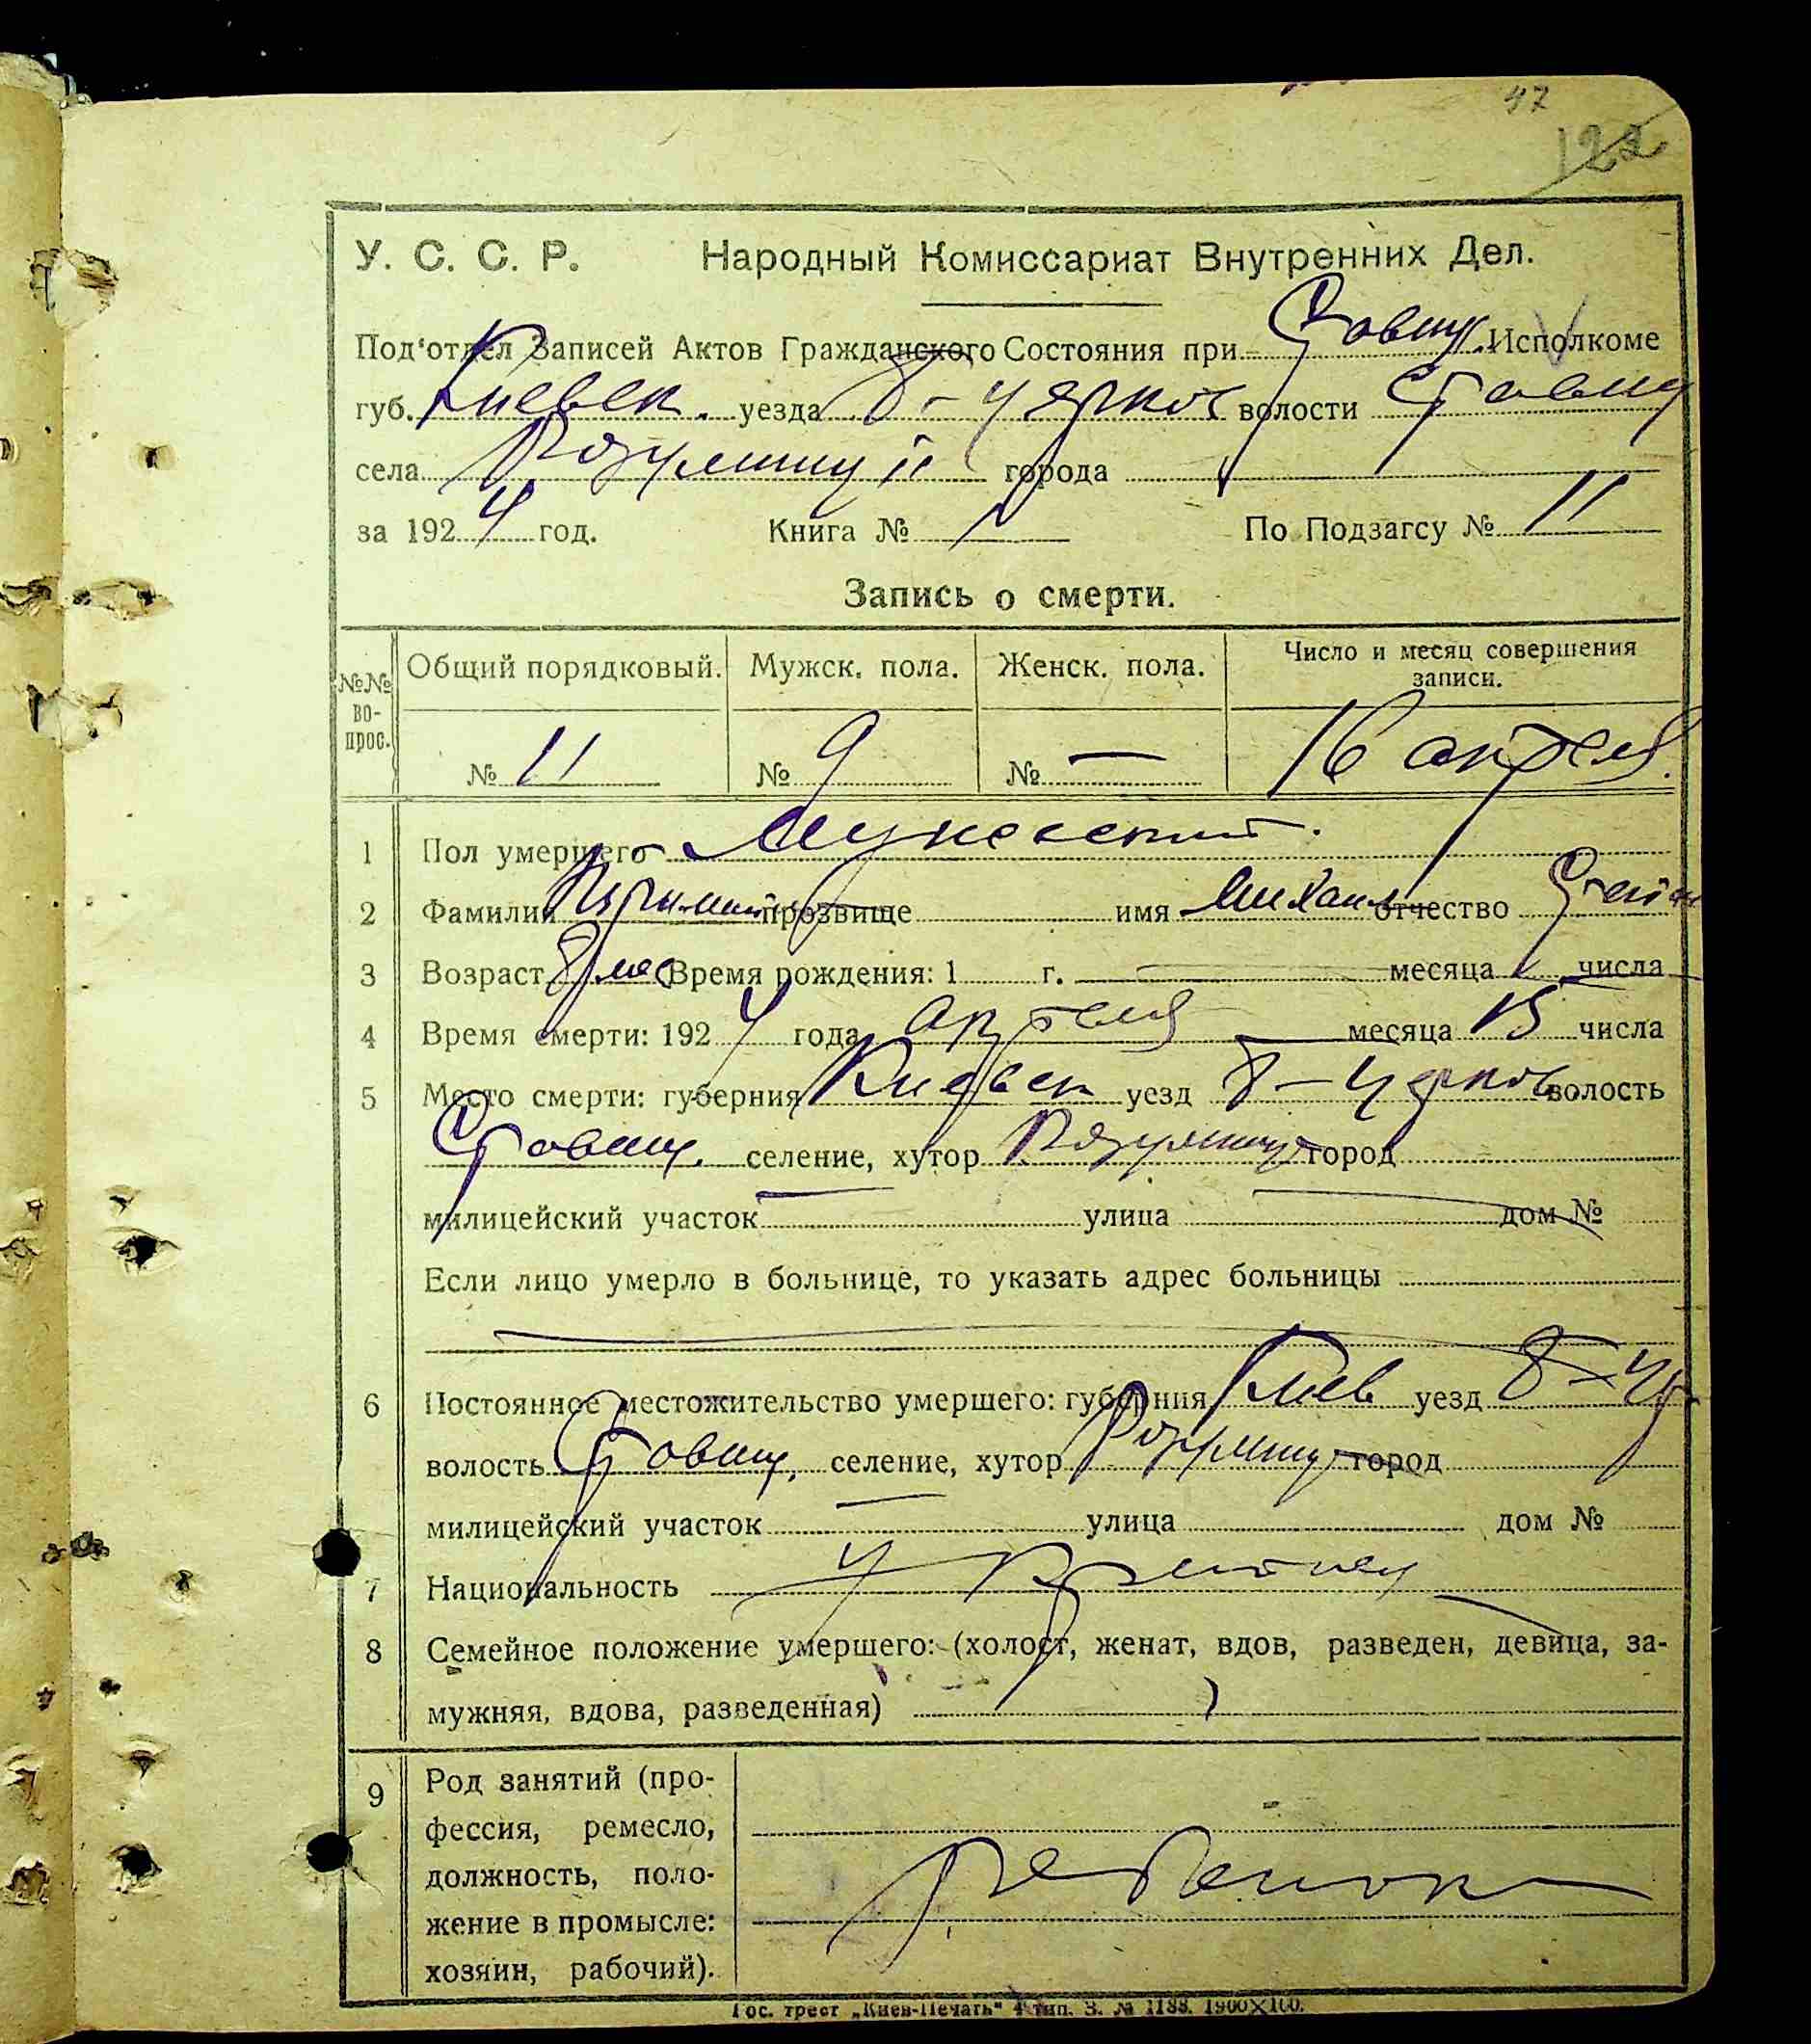 47
122
У. С. С. Р. Народный Комиссариат Внутренних Дел.
Под'отдел Записей Актов Гражданского Состояния при Ставищ. Исполкоме
губ. Киевск. уезда Б-Церков волости Ставищ
села города
за 1924 год. Книга № По Подзагсу № 11
Запись о смерти.
№№ во-прос. Общий порядковый. Мужск. пола. Женск. пола. Число и месяц совершения записи.
№ 11 № 9 № — 16 апреля.
1 Пол умершего Мужеский.
2 Фамилия прозвище имя Михаил отчество Степан
3 Возраст 8 мес Время рождения: 1 г. месяца числа
4 Время смерти: 1924 года апреля месяца 15 числа
5 Место смерти: губерния Киевск уезд Б-Церков волость
Ставищ. селение, хутор Розумниц город
милицейский участок улица дом №
Если лицо умерло в больнице, то указать адрес больницы
6 Постоянное местожительство умершего: губерния Киев уезд Б-Ц
волость Ставищ. селение, хутор Розумниц город
милицейский участок улица дом №
7 Национальность Украинец
8 Семейное положение умершего: (холост, женат, вдов, разведен, девица, за-
мужняя, вдова, разведенная)
9 Род занятий (про-
фессия, ремесло,
должность, поло-
жение в промысле:
хозяин, рабочий).
Ребенок
Гос. трест „Киев-Печать" 4 тип. З. № 1188. 1900×100.